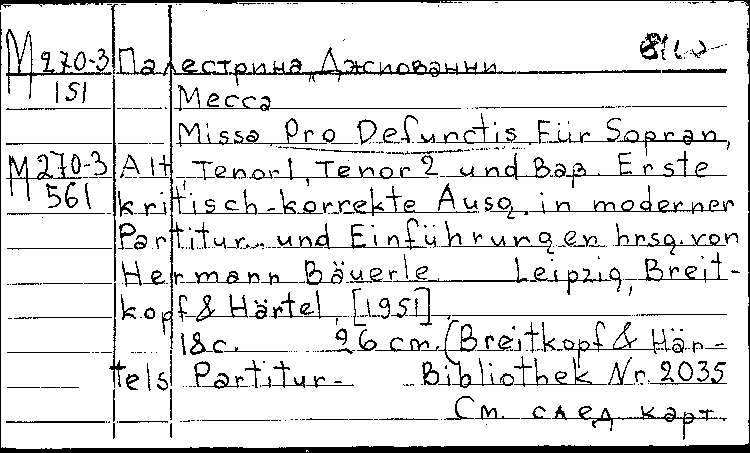 М 270-3 Палестрина, Джиованни
151
Месса
Missa Pro Defunctis Für Sopran,
М 270-3 Alt, Tenor1, Tenor 2 und Bap. Erste
561 kritisch-korrekte Ausg. in moderner
Partitur und Einführungen hrsg. von
Hermann Bäuerle Leipzig, Breit-
kopf & Härtel, [1951].
18c. 26 cm. (Breitkopf & Här-
tels Partitur- Bibliothek Nr. 2035
См. след карт.